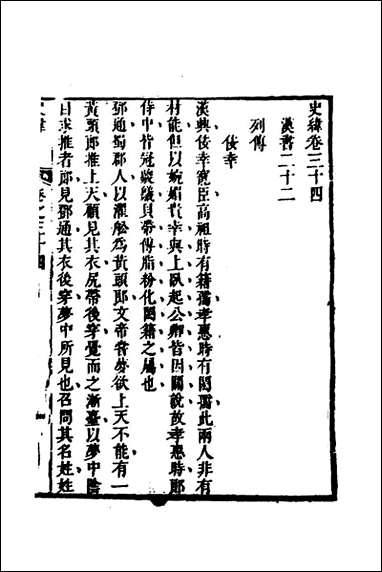 史緯卷三十四
漢書二十二
列傳
佞幸
漢興佞幸寵臣高祖時有籍孺孝惠時有閎孺此兩人非有
材能但以婉媚貴幸與上臥起公卿皆因關說故孝惠時郎
侍中皆冠鵔鸃貝帶傅脂粉化閎籍之屬也
鄧通蜀郡人以濯船為黃頭郎文帝嘗夢欲上天不能有一
黃頭郎推上天顧見其衣尻帶後穿覺而之漸臺以夢中陰
目求推者郎見鄧通其衣後穿夢中所見也召問其名姓姓